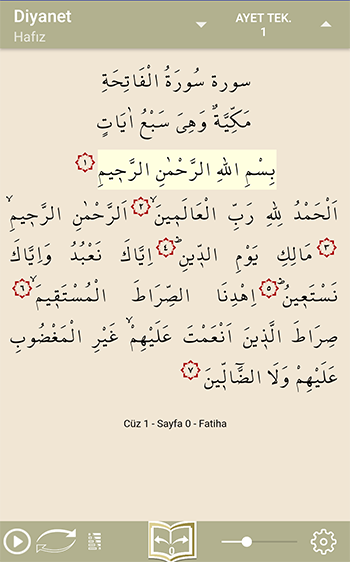 Diyanet
Hafız
AYET TEK.
1
سورة سُورَةُ الْفَاتِحَةِ
مَكِّيَّةٌ وَهِىَ سَبْعُ اٰيَاتٍ
بِسْمِ اللهِ الرَّحْمٰنِ الرَّح۪يمِ ﴿١﴾
اَلْحَمْدُ لِلهِ رَبِّ الْعَالَم۪ينَۙ ﴿٢﴾ اَلرَّحْمٰنِ الرَّح۪يمِۙ
﴿٣﴾ مَالِكِ يَوْمِ الدّ۪ينِۜ ﴿٤﴾ اِيَّاكَ نَعْبُدُ وَاِيَّاكَ
نَسْتَع۪ينُۜ ﴿٥﴾ اِهْدِنَا الصِّرَاطَ الْمُسْتَق۪يمَۙ ﴿٦﴾
صِرَاطَ الَّذ۪ينَ اَنْعَمْتَ عَلَيْهِمْۙ غَيْرِ الْمَغْضُوبِ
عَلَيْهِمْ وَلَا الضَّٓالّ۪ينَ ﴿٧﴾
Cüz 1 - Sayfa 0 - Fatiha
0